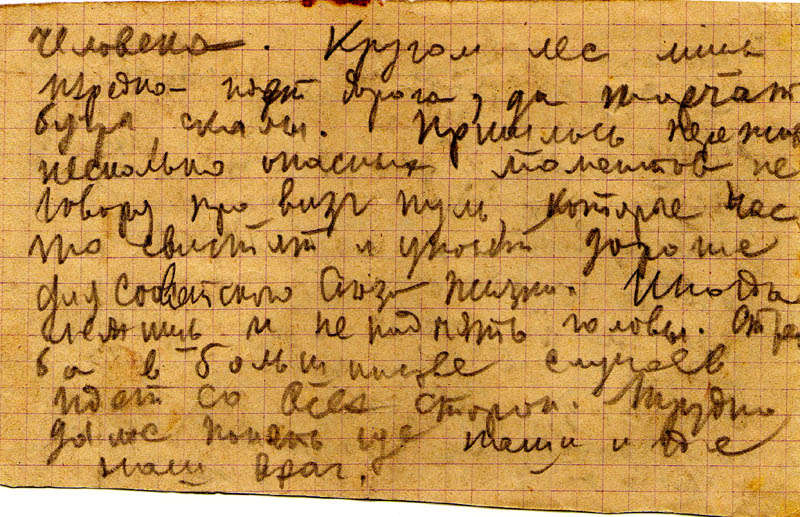 человека. Кругом лес лишь
изредка идет дорога, да торчат
бугра скалы. Пришлось пережить
несколько опасных моментов не
говоря про визг пуль, которые час
то свистят и уносят дорогие
для Советского Союза жизни. Иногда
лежишь и не поднять головы. Стрель
ба в большинстве случаев
идет со всех сторон. Трудно
даже понять где наши и где
наш враг.